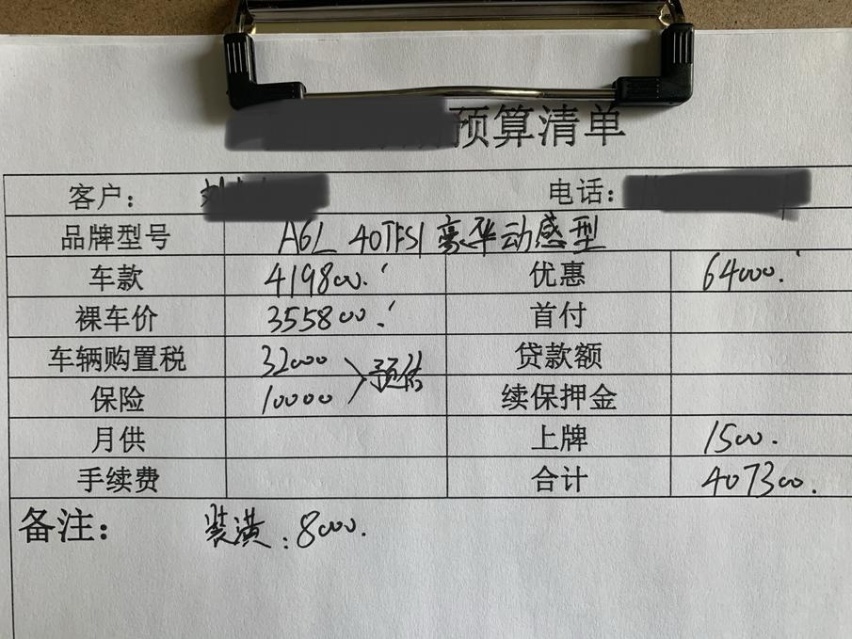 预算清单
客户： 电话：
品牌型号 A6L 40TFSI 豪华动感型
车款 419800. 优惠 64000.
裸车价 355800. 首付
车辆购置税 32000 预估 贷款额
保险 10000 续保押金
月供 上牌 1500.
手续费 合计 407300.
备注： 装潢：8000.